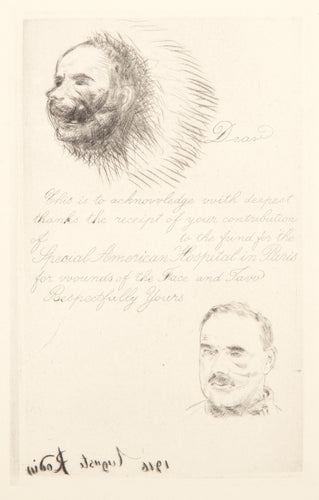 Dear
This is to acknowledge with deepest
thanks the receipt of your contribution
of to the fund for the
Special American Hospital in Paris
for wounds of the Face and Jaw
Respectfully Yours
1916 Auguste Rodin